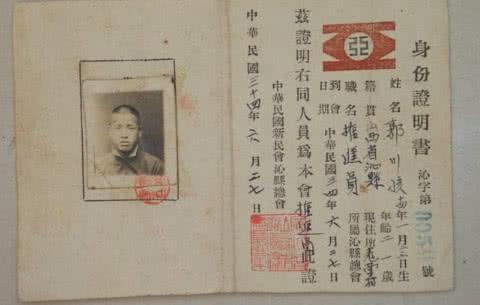 身份證明書
沁字第 號
姓名 郭
年 一月三日生
年齡 二一 歲
籍貫 山西省沁縣
現住所
職名 推進員
所屬沁縣總會
到會日期 中華民國三四年六月二七日
茲證明右同人員為本會推進員此證
中華民國新民會沁縣總會
中華民國三十四年六月二七日